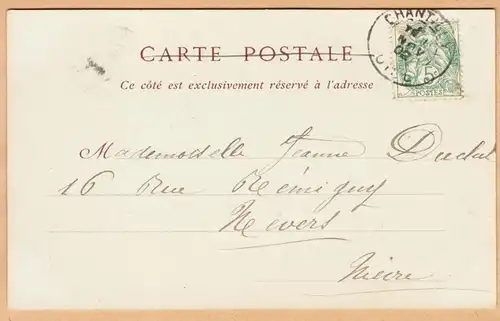 CARTE POSTALE
Ce côté est exclusivement réservé à l'adresse
CHANT
POSTES
Mademoiselle Jeanne
16 Rue Rémigny
Nevers
Nièvre